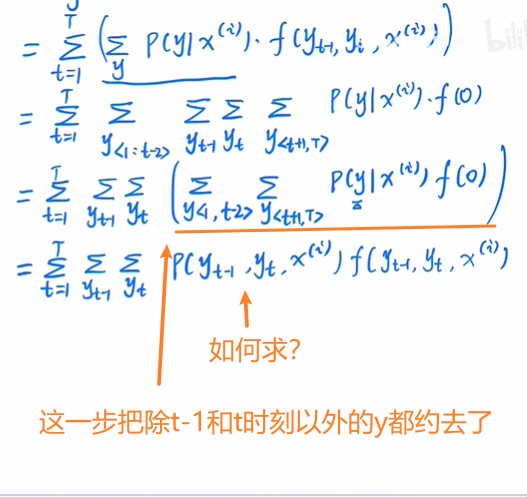 = Σ_{t=1}^{T} ( Σ_y P(y|x^{(i)}) · f(y_{t-1}, y_i, x^{(i)}) )
= Σ_{t=1}^{T} Σ_{y<1:t-2>} Σ_{y_{t-1}} Σ_{y_t} Σ_{y<t+1,T>} P(y|x^{(i)}) · f(0)
= Σ_{t=1}^{T} Σ_{y_{t-1}} Σ_{y_t} ( Σ_{y<1,t-2>} Σ_{y<t+1,T>} P(y|x^{(i)}) f(0) )
= Σ_{t=1}^{T} Σ_{y_{t-1}} Σ_{y_t} P(y_{t-1}, y_t, x^{(i)}) f(y_{t-1}, y_t, x^{(i)})
如何求？
这一步把除t-1和t时刻以外的y都约去了